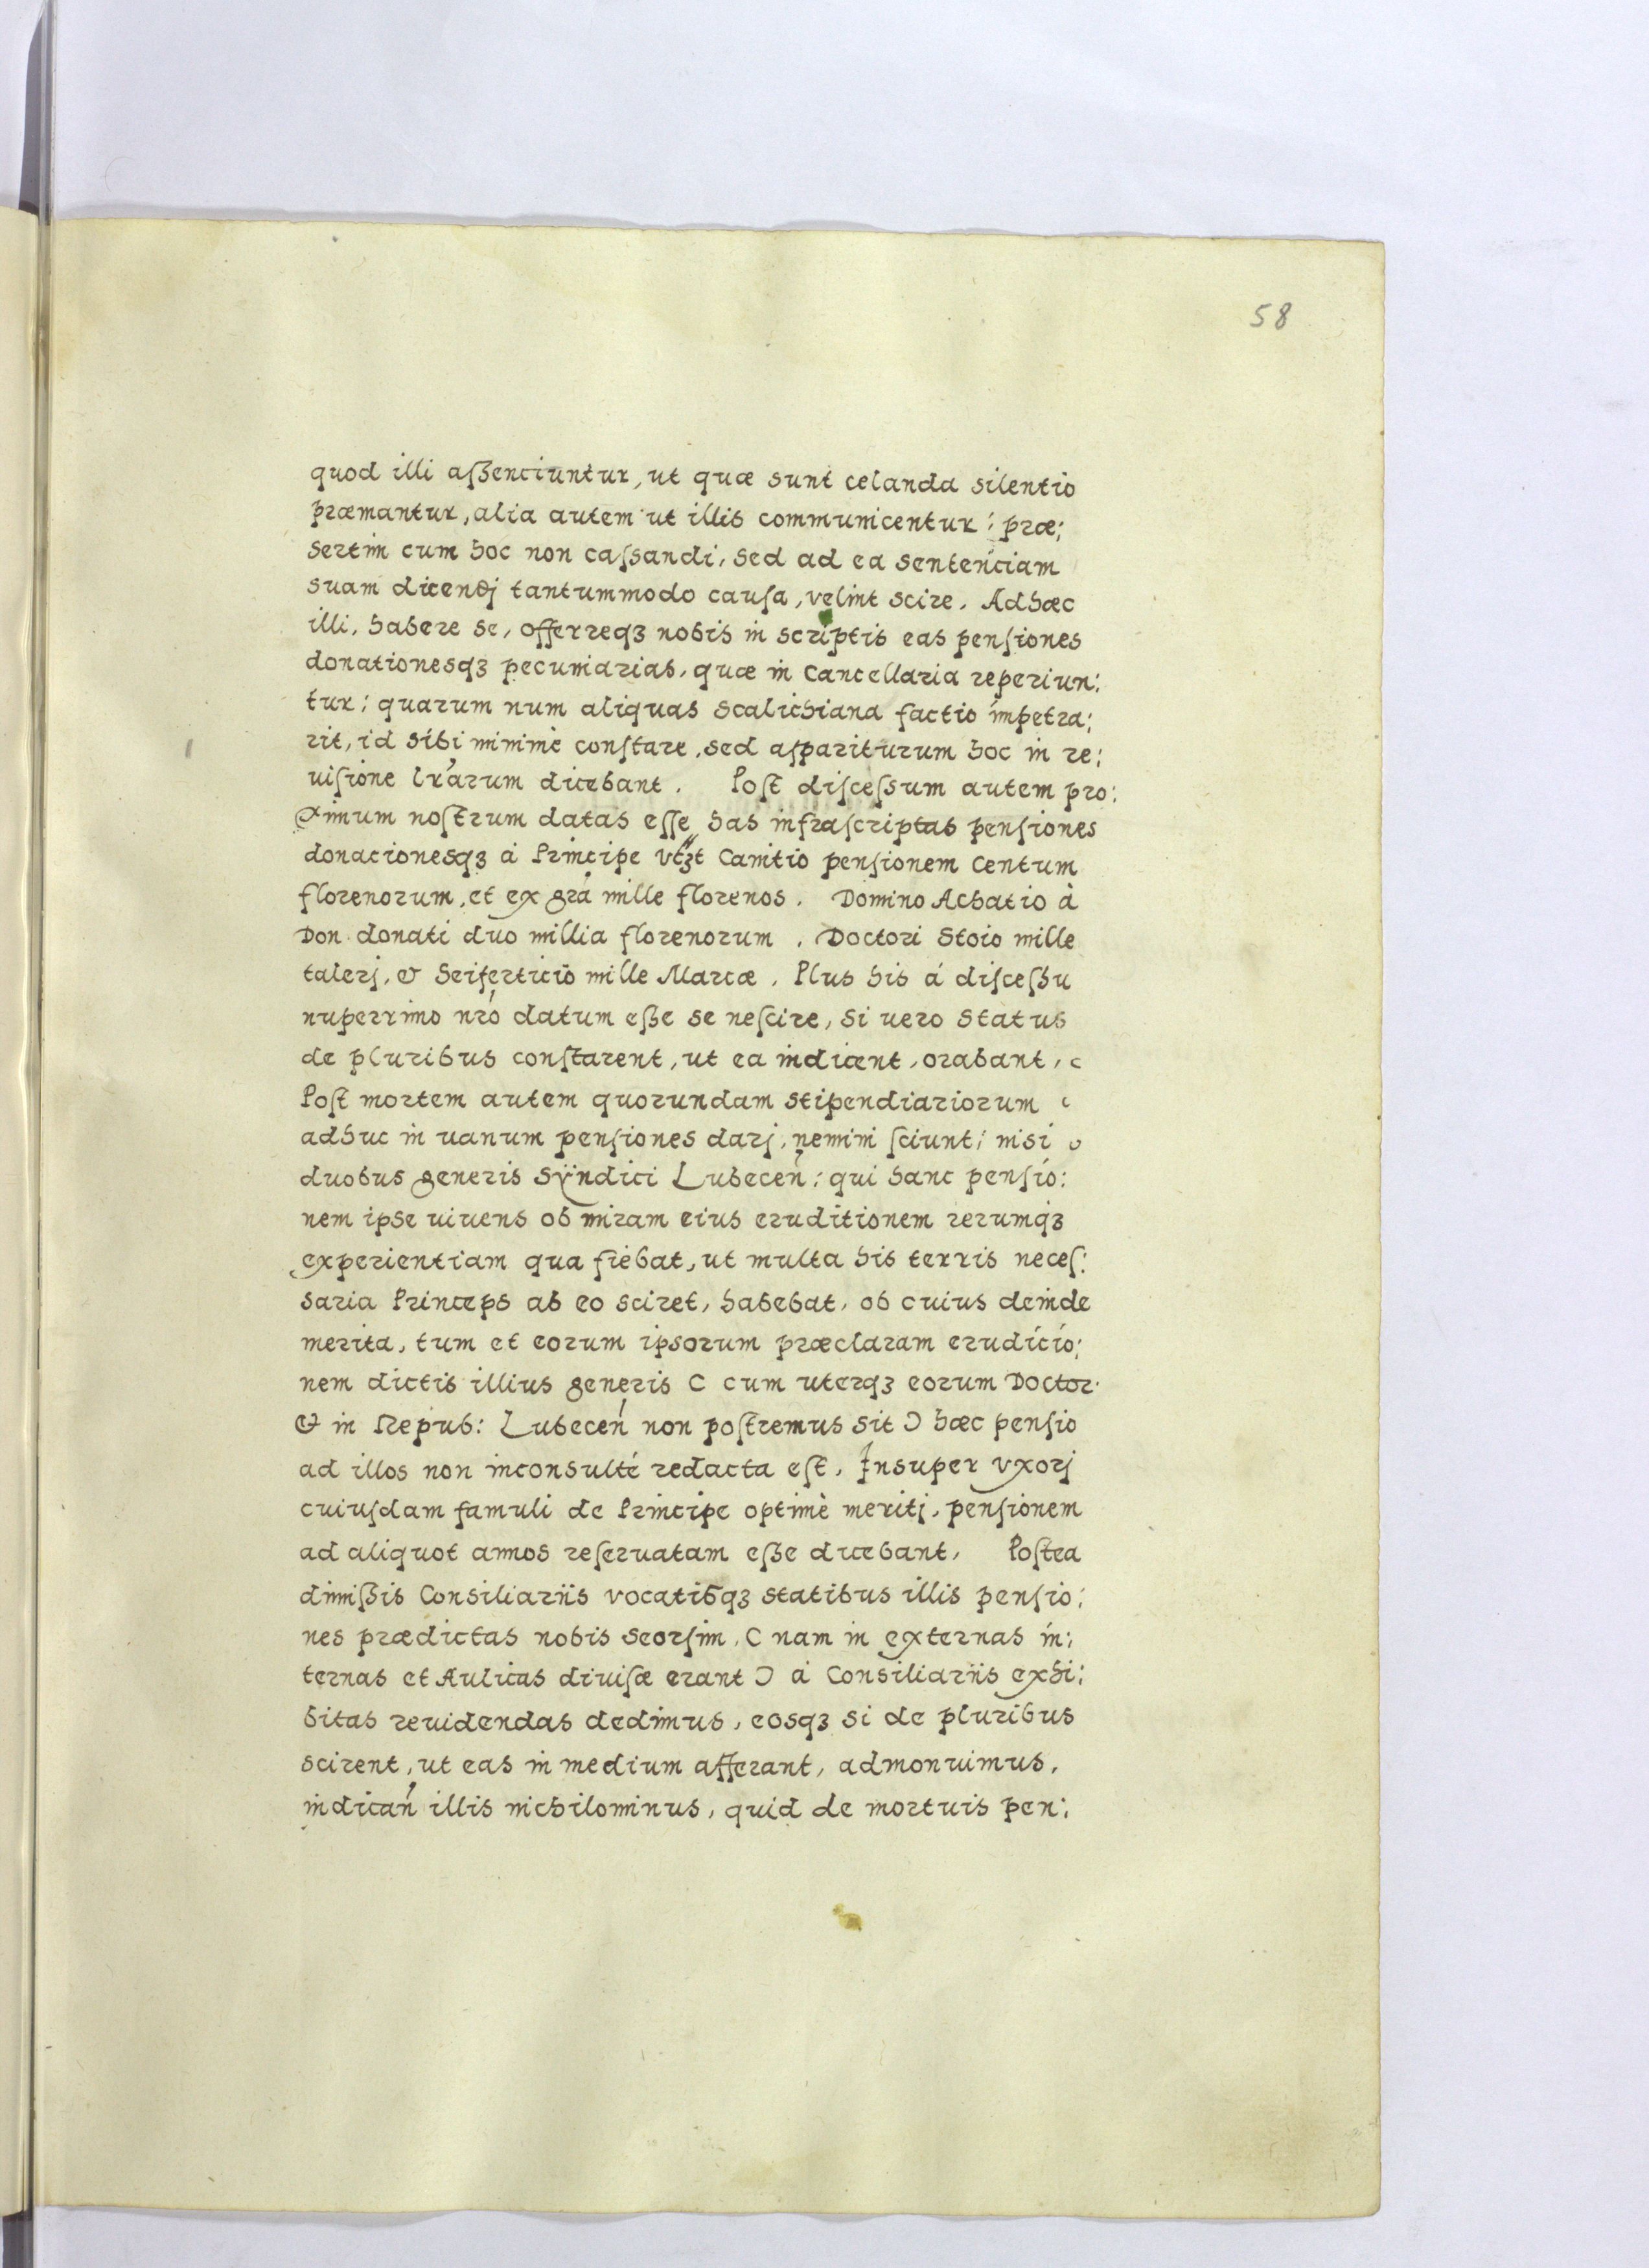 58
quod illi aſßenciuntur, ut quæ sunt celanda silentio
præmantur, alia autem ut illis communicentur: præ:
sertim cum hoc non caſsandi, sed ad ea sentenciam
suam dicendj tantummodo cauſa, velint scire. Adhæc
illi, habere se, offerreqꝫ nobis in scriptis eas penſiones
donationesqꝫ pecuniarias, quæ in Cancellaria reperiun:
tur: quarum num aliquas Scalichiana factio impetra:
rit, id sibi minimè conſtare, sed aſpariturum hoc in re:
uiſione lr̃arum dicebant. Poſt diſceſsum autem pro:
ximum noſtrum datas eſſe has infraſcriptas penſiones
donacionesqꝫ á Principe vtꝫt Canitio penſionem Centum
florenorum, et ex gra̍ mille florenos. Domino Achatio à
Don donati duo millia florenorum. Doctori Stoio mille
talerj, & Seiferticio mille Marcæ. Plus his á diſceſßu
nuperrimo nro̍ datum eſße se neſcire, si uero Status
de pluribus conſtarent, ut ea indicent, orabant, c
Poſt mortem autem quorundam stipendiariorum c
adhuc in uanum penſiones darj, nemini ſciunt: nisi o
duobus generis Sÿndici Lubecen̍: qui hanc penſio:
nem ipse uiuens ob miram eius eruditionem rerumqꝫ
experientiam qua fiebat, ut multa his terris neceſ:
saria Princeps ab eo sciret, habebat, ob cuius deinde
merita, tum et eorum ipsorum præclaram erudicio:
nem dictis illius generis C cum uterqꝫ eorum Doctor.
& in Repub: Lubecen̍ non poſtremus sit Ɔ hæc penſio
ad illos non inconsulté redacta eſt. Insuper vxorj
cuiuſdam famuli de Principe optimè meritj, penſionem
ad aliquot annos reſeruatam eſße dicebant. Poſtea
dimiſßis Consiliariis vocatibqꝫ statibus illis penſio:
nes prædictas nobis seorſim, C nam in externas in:
ternas et Aulicas diuiſæ erant Ɔ á Consiliariis exhi:
bitas reuidendas dedimus, eosqꝫ si de pluribus
scirent, ut eas in medium afferant, admonuimus.
indican̍ illis nichilominus, quid de mortuis pen: